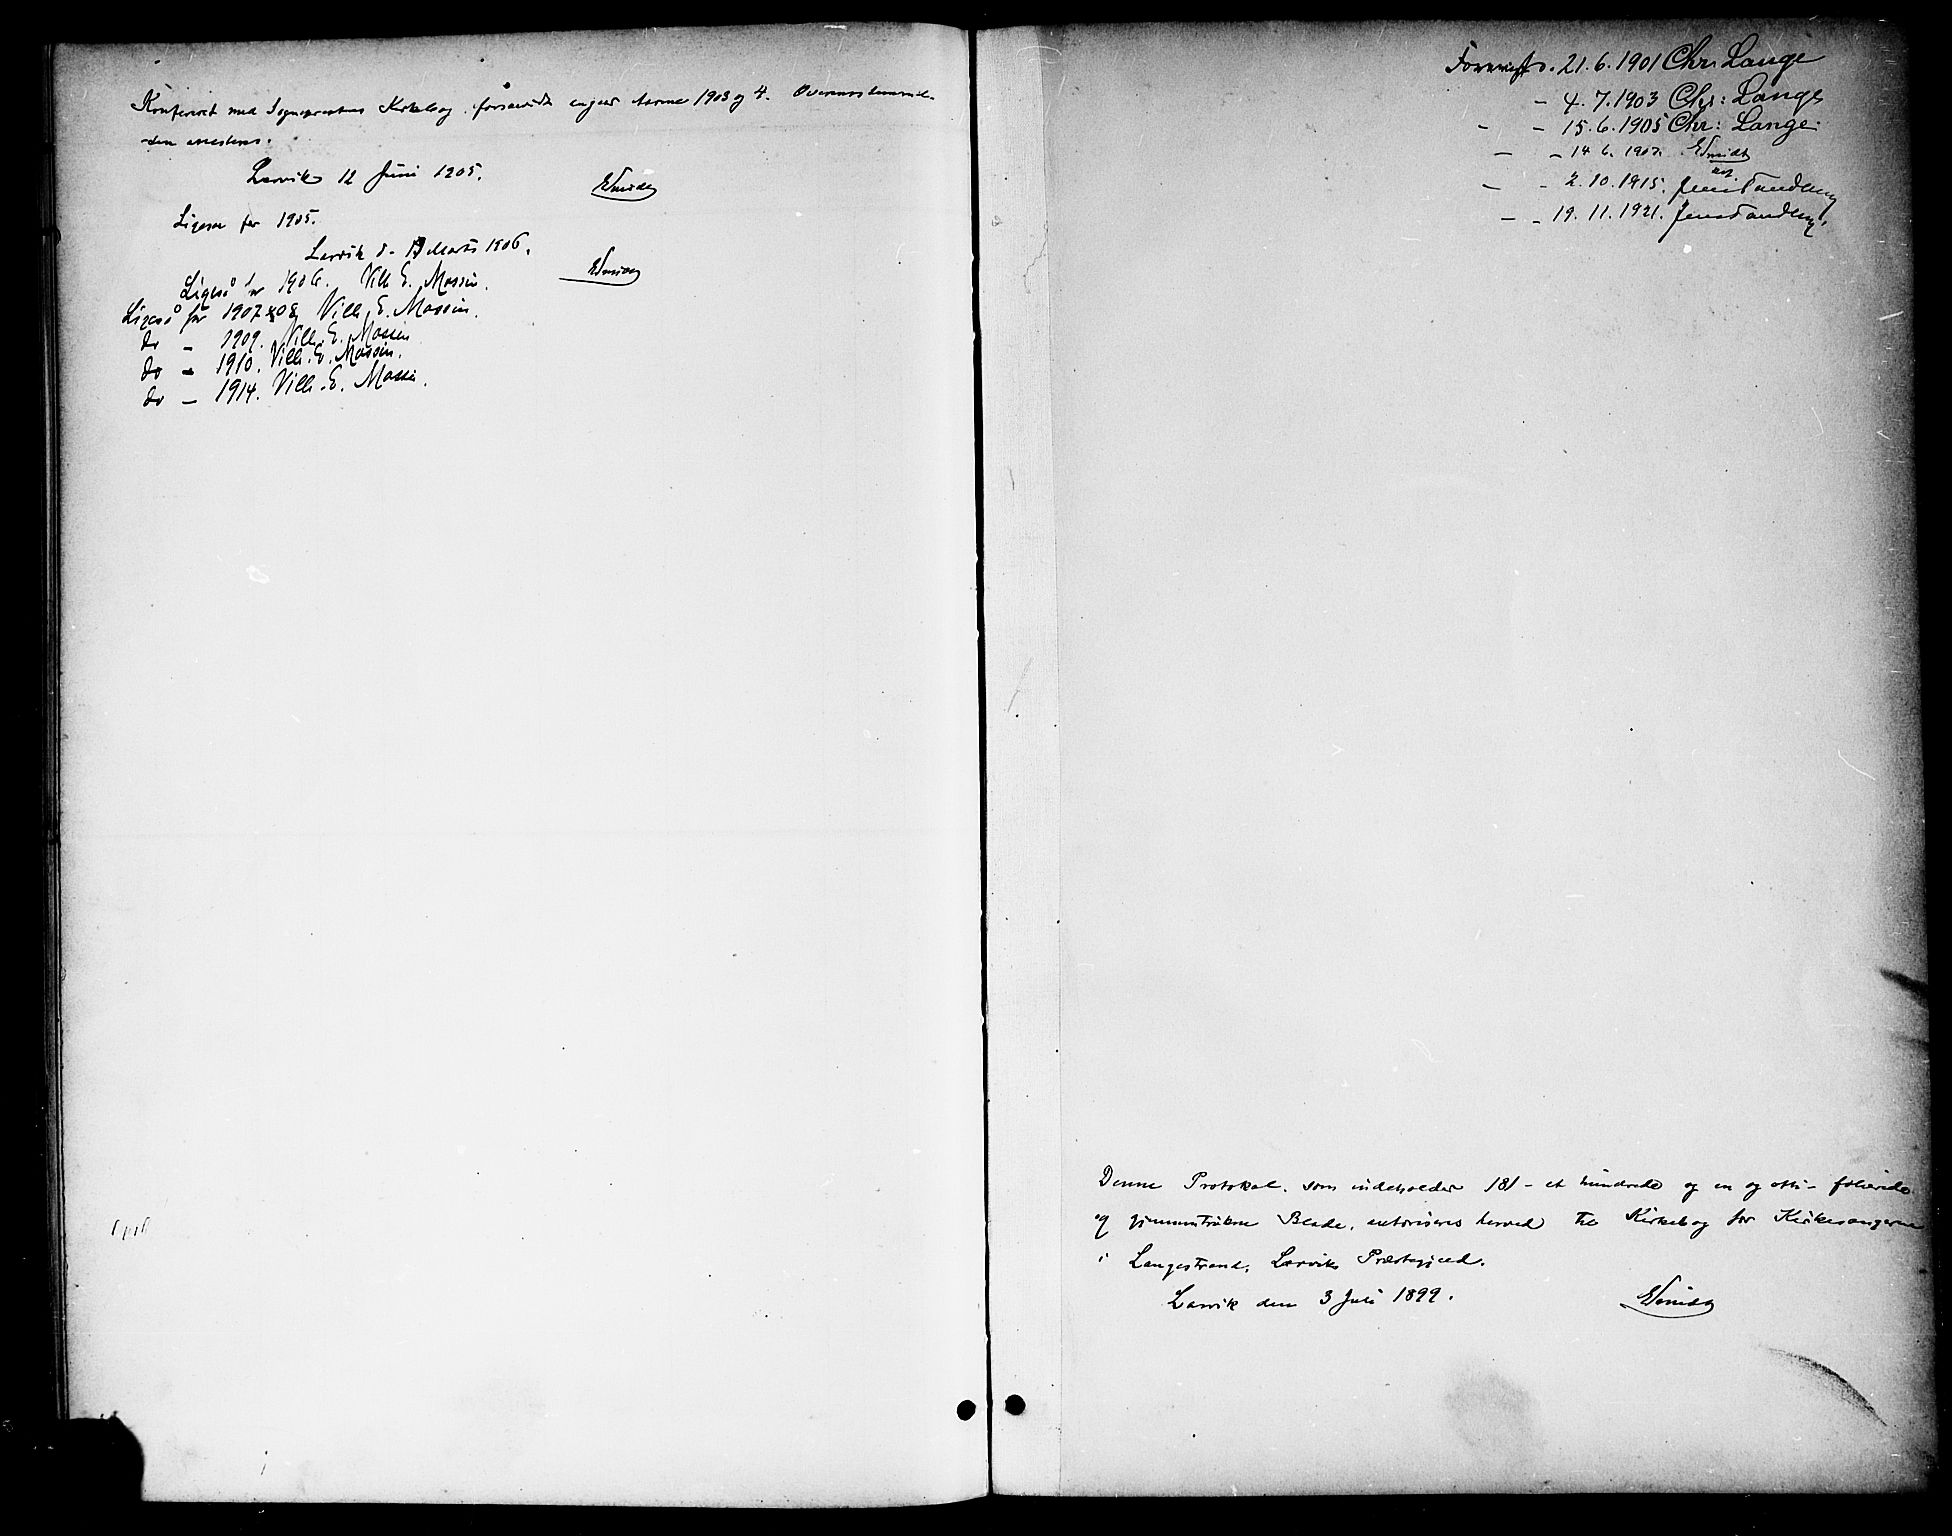 Konfereret med Sogneprestens Kirkebog, forsaavidt angaar Aarene 1903 og 4. Overensstemmel-
sen attesteres.
Larvik 12 Juni 1905.
ESmidt
Ligesaa for 1905.
Larvik d. 17 Marts 1906.
ESmidt
Ligeså for 1906. Vilh. E. Massin.
Ligeså for 1907 & 08 Vilh. E. Massin.
do – 1909. Vilh. E. Massin
do – 1910. Vilh. E. Massin.
do – 1914. Vilh. E. Massin.
Forevist d. 21.6.1901 Chr. Lange
– 4.7.1903 Chr: Lange
– – 15.6.1905 Chr: Lange
– – 14.6.1907. ESmidt
– – 2.10.1915. Jens Tandberg
– – 19.11.1921. Jens Tandberg.
Denne Protokol, som indeholder 181 – et hundrede og en og otti – folierede
og gjennemtrukne Blade, autoriseres herved til Kirkebog for Kirkesangeren
i Langestrand, Larviks Præstegjæld.
Larvik den 3 Juli 1899.
ESmidt